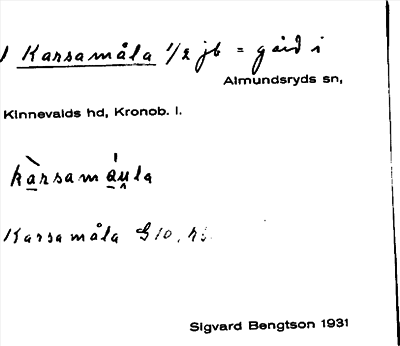 Karsamåla 1/2 jb = gård i
Almundsryds sn,
Kinnevalds hd, Kronob. l.
kàrsamáu̯la
Karsamåla G10,
Sigvard Bengtson 1931